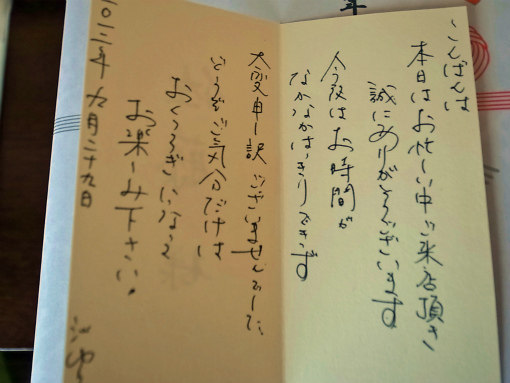 こんばんは
本日はお忙しい中ご来店頂き
誠にありがとうございます
今夜はお時間が
なかなかはっきりできず
大変申し訳ございませんでした
どうぞご気分だけは
おくつろぎになって
お楽しみ下さい。
二〇一二年 九月二十九日